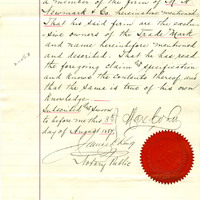 a member of the firm of M. A.
& Co. hereinbefore mentioned.
That his said firm are the exclu-
sive owners of the Trade Mark
and name hereinbefore mentioned
and described. That he has read
the foregoing claim & specification
and knows the contents thereof, and
that the same is true of his own
knowledge.
Subscribed & Sworn
to before me this
day of August
Notary Public